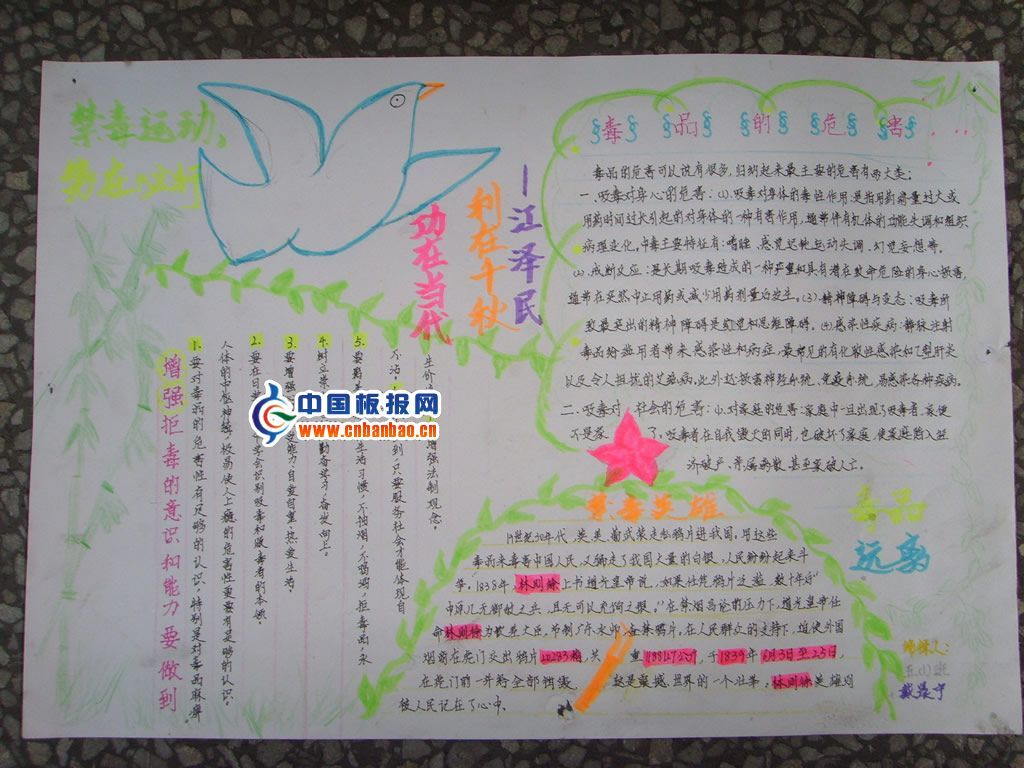 禁毒运动，
势在必行
功在当代
利在千秋
—江泽民
毒品的危害...
毒品的危害可以说有很多，归纳起来最主要的危害有两大类：
一、吸毒对身心的危害：(1)、吸毒对身体的毒性作用是指用药剂量过大或
用药时间过长引起的对身体的一种有害作用，通常伴有机体的功能失调和组织
病理变化。中毒主要特征有：嗜睡、感觉迟钝、运动失调、幻觉、妄想等。
(2)、戒断反应：是长期吸毒造成的一种严重和具有潜在致命危险的身心损害，
通常在突然中止用药或减少用药剂量后发生。(3)、精神障碍与变态：吸毒所
致最突出的精神障碍是幻觉和思维障碍。(4)感染性疾病：静脉注射
毒品给滥用者带来感染性和病症，最常见的有化脓性感染和乙型肝炎
以及令人担忧的艾滋病。此外还损害神经系统、免疫系统，易感染各种疾病。
二、吸毒对社会的危害：(1)、对家庭的危害：家庭中一旦出现了吸毒者，家便
不是家了。吸毒者在自我毁灭的同时，也破坏了家庭，使家庭陷入经
济破产、亲属离散、甚至家破人亡。
增强拒毒的意识和能力要做到
1.要对毒品的危害性有足够的认识，特别是对毒品麻痹
人体的中枢神经，极易使人上瘾的危害性更要有足够的认识。
2.要在日
学会识别吸毒和贩毒者的本领。
3.要增强
受能力，自尊自重，热爱生活。
4.树立崇
勤奋学习，奋发向上。
5.要
生活习惯，不抽烟，不喝酒，拒毒品，永
不沾，
到，只要服务社会才能体现自
生价
增强法制观念。
中国板报网
www.cnbanbao.cn
禁毒英雄
19世纪30年代，英、美、葡武装走私鸦片进我国，用这些
毒品来毒害中国人民，又掠走了我国大量的白银，人民纷纷起来斗
争。1838年，林则徐上书道光皇帝说，如果任凭鸦片泛滥，数十年后“
中原几无御敌之兵，且无可以充饷之银。”在禁烟舆论的压力下，道光皇帝任
命林则徐为钦差大臣，节制广东水师，查禁鸦片，在人民群众的支持下，迫使外国
烟商在虎门交出鸦片20283箱，共重1188127公斤，于1839年6月3日至25日，
在虎门前一并将全部销毁。这是震撼世界的一个壮举，林则徐英雄则
被人民记在了心中。
毒品
远离
编辑人：
五(1)班